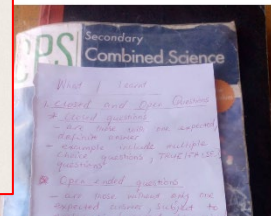 CPS
Secondary
Combined Science
What I learnt
Closed and Open Questions
* Closed questions
- are those with one expected,
definite answer
- example include multiple
choice questions, TRUE/FALSE
questions
Open ended questions
- are those without only one
expected answer, subject to